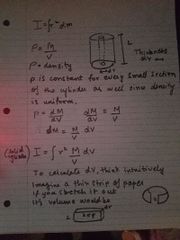 I = ∫r²dm
ρ = M/V
ρ = density
L
Thickness
dr
ρ is constant for every small section
of the cylinder as well since density
is uniform.
ρ = dM/dV   dM/dV = M/V
∴ dM = M/V dV
(Solid cylinder) I = ∫r² M/V dV
To calculate dV, think intuitively
Imagine a thin strip of paper
if you stretch it out
its volume would be
L
2πr
dr